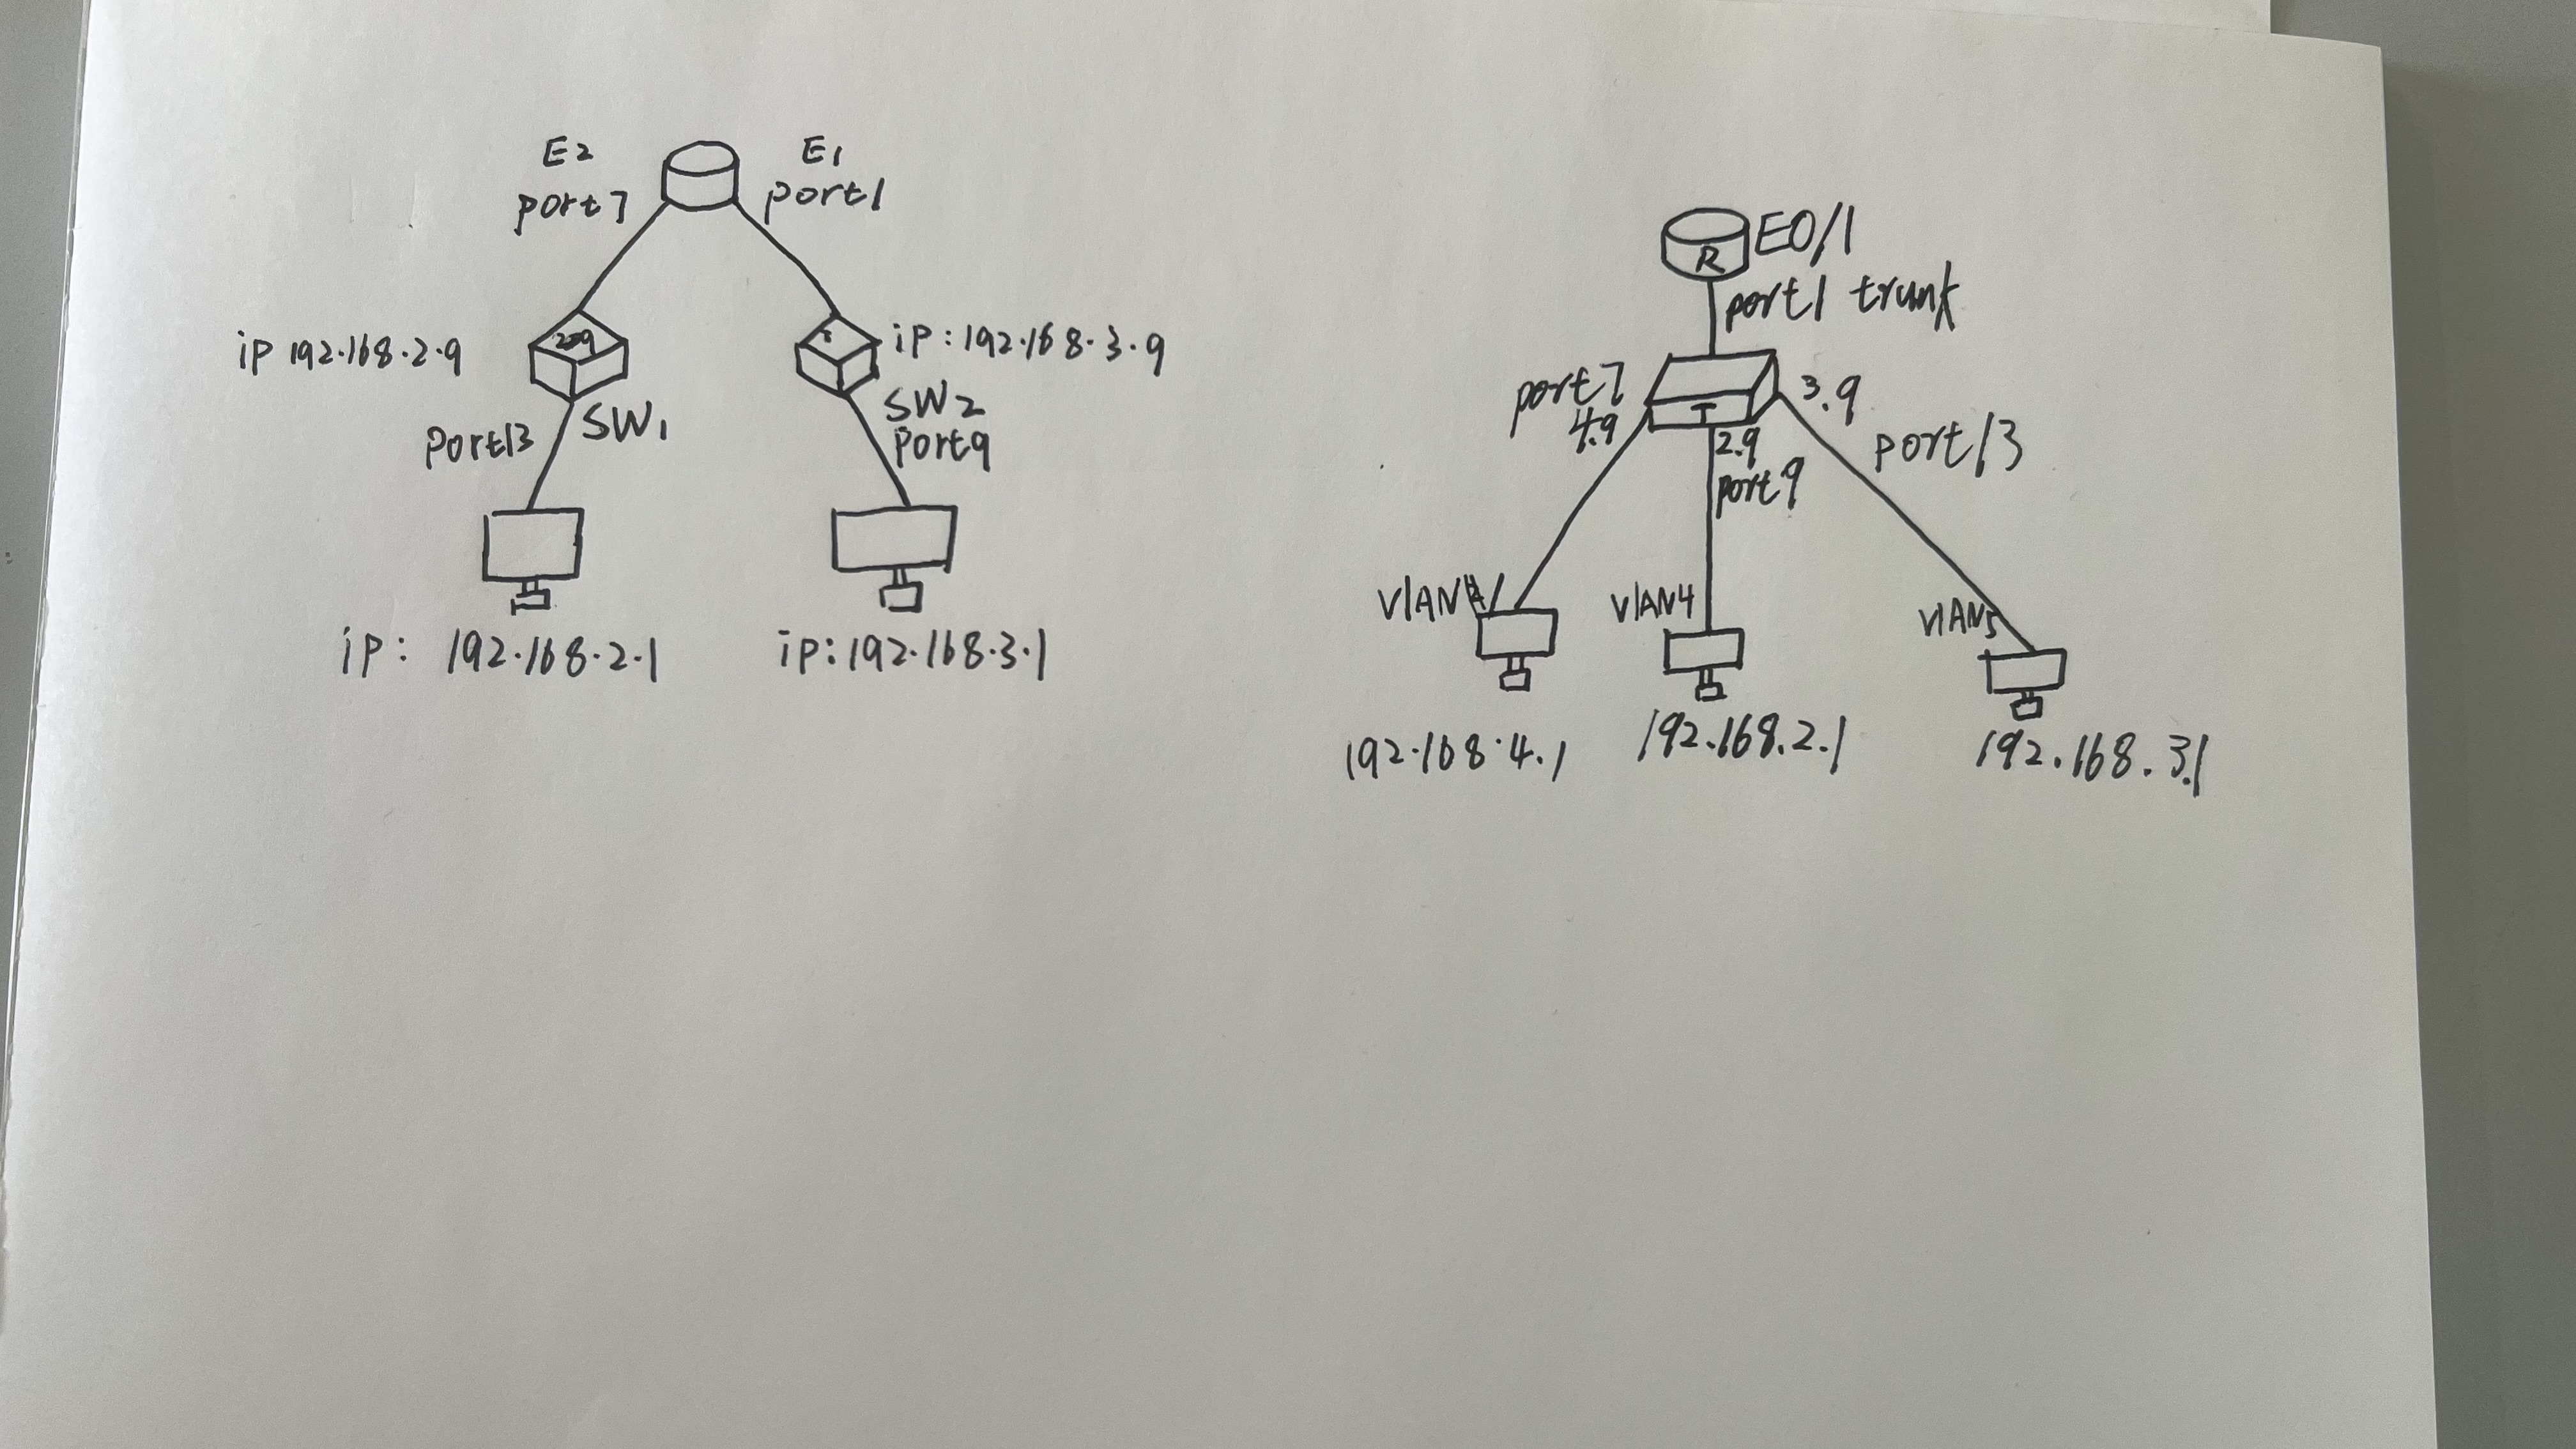 E2
port7
E1
port1
ip 192.168.2.9
ip:192.168.3.9
SW1
Port13
SW2
Port9
ip: 192.168.2.1
ip:192.168.3.1
R
E0/1
port1 trunk
port7
4.9
2.9
port9
3.9
port13
VlAN
VlAN4
VlAN5
192.168.4.1
192.168.2.1
192.168.3.1